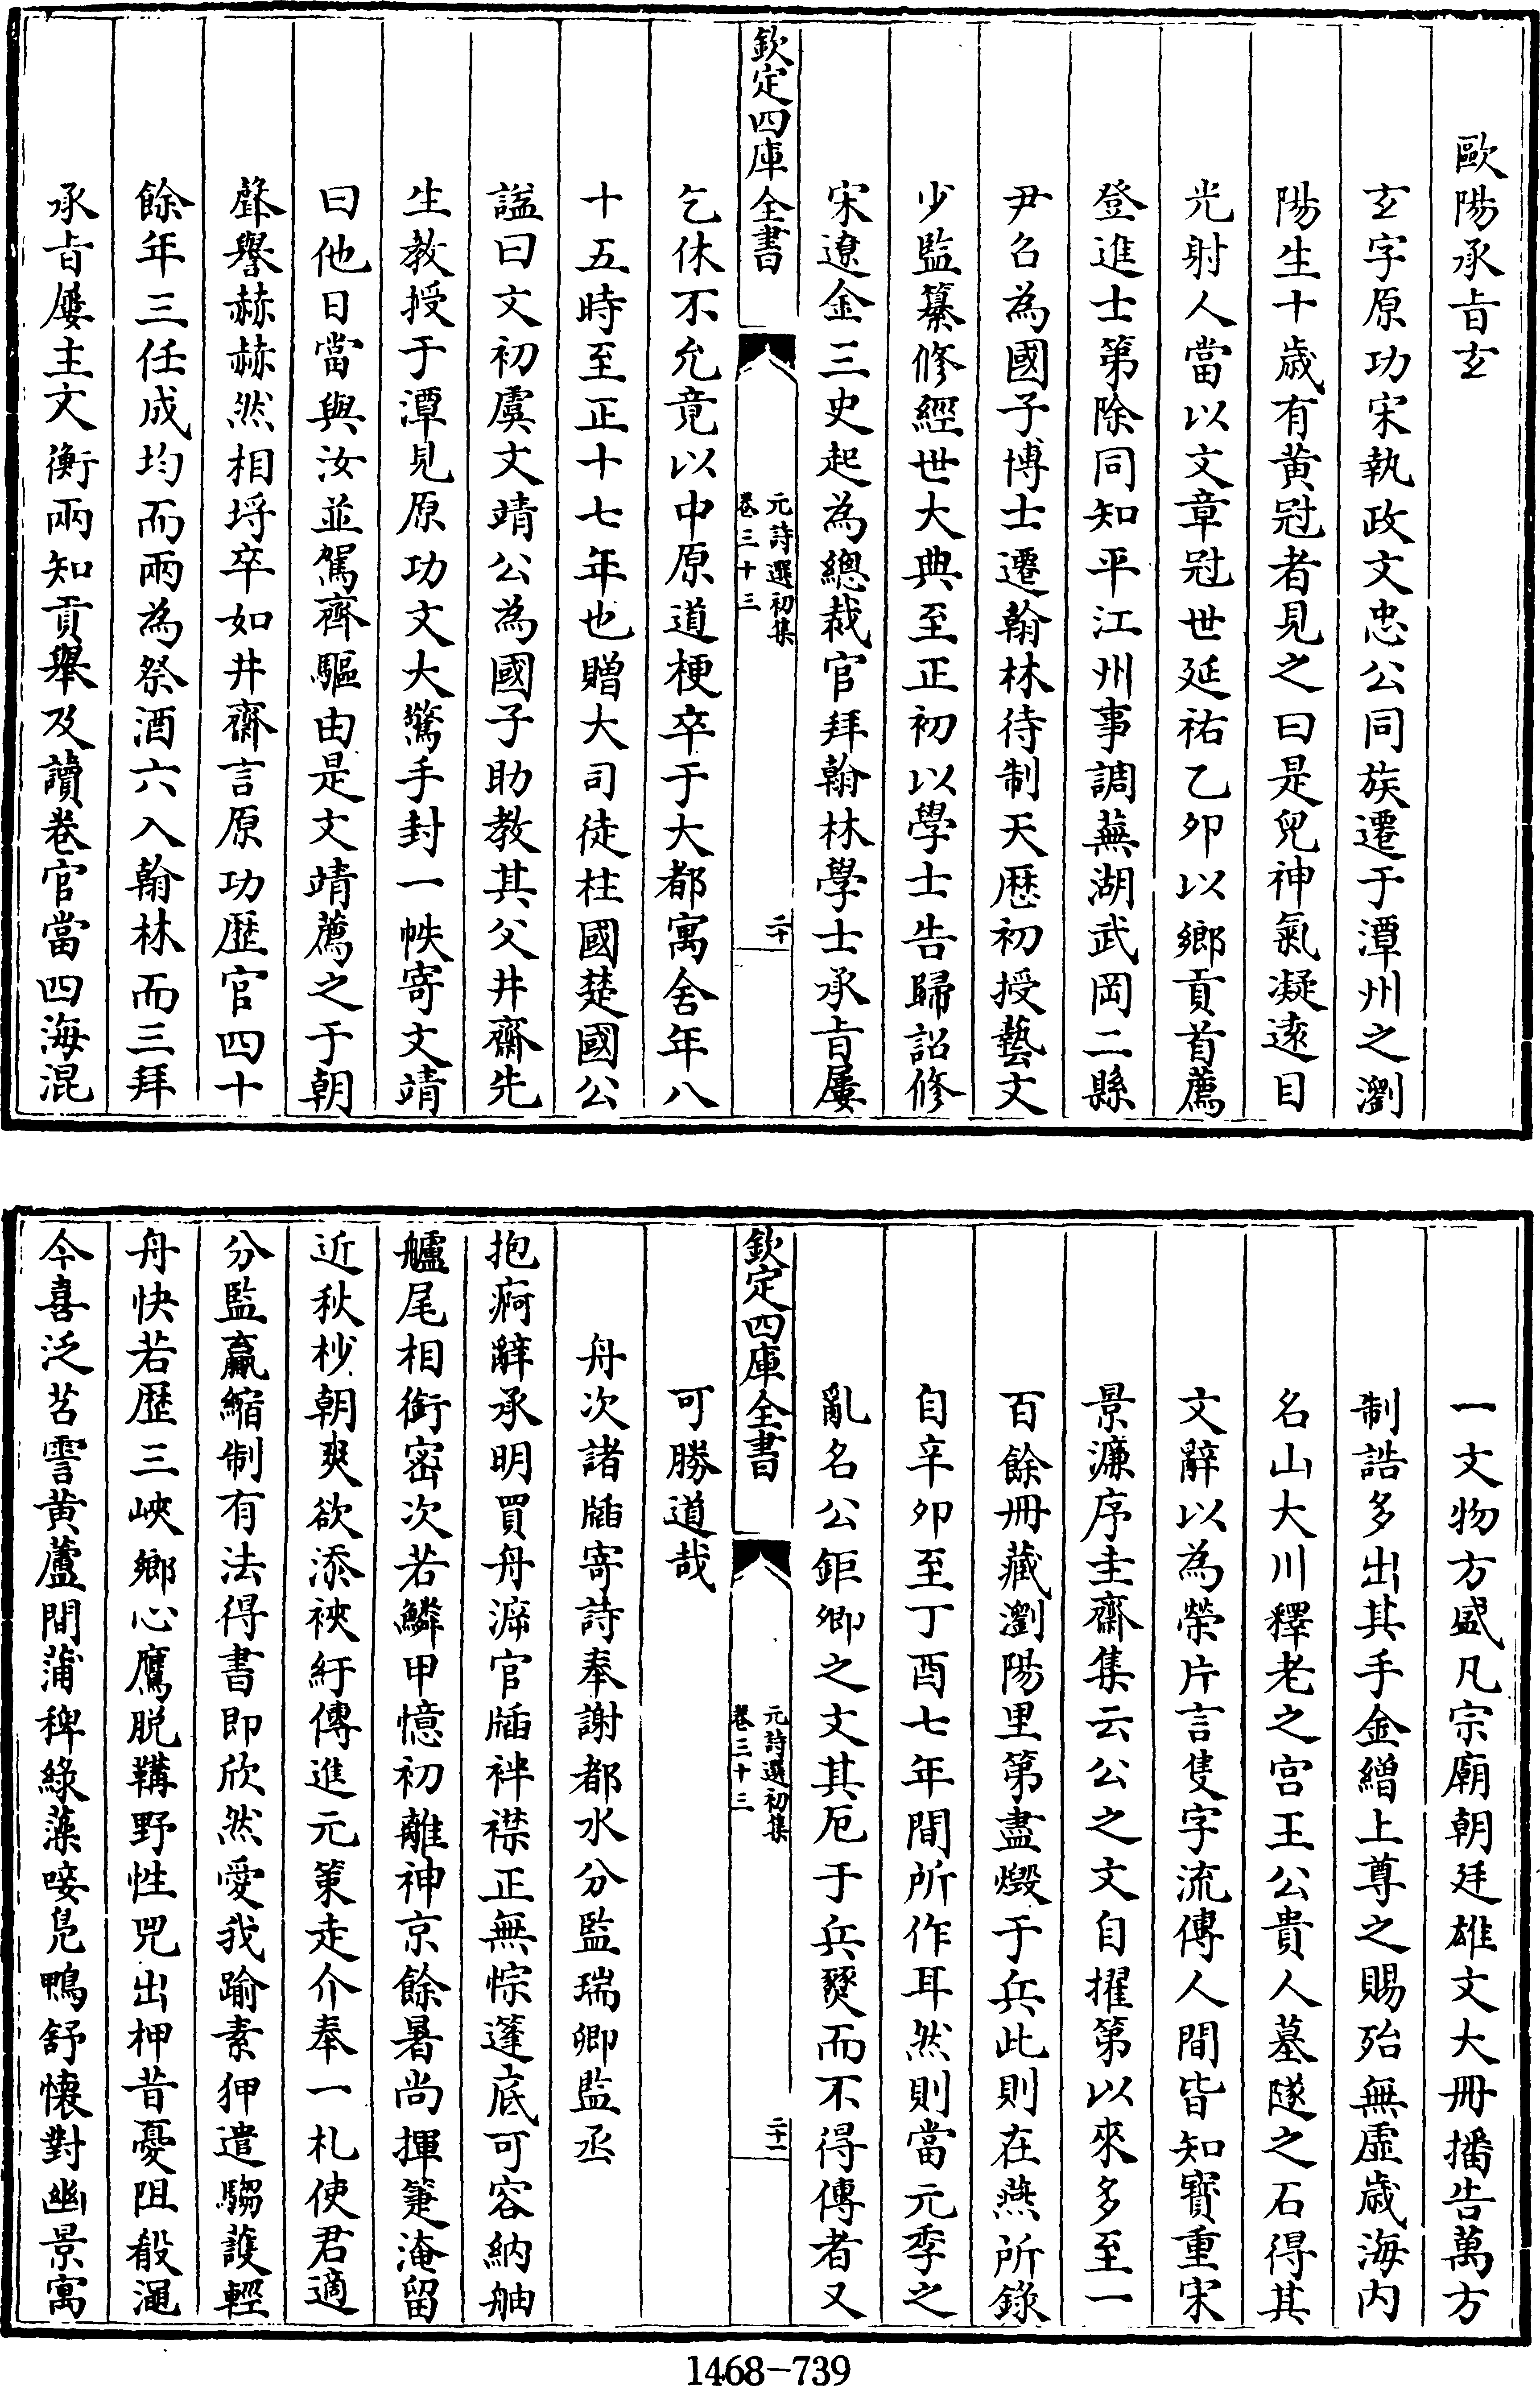 歐陽承旨玄
玄字原功宋執政文忠公同族遷于潭州之瀏
陽生十歲有黄冠者見之曰是兒神氣凝遠目
光射人當以文章冠世延祐乙卯以鄉貢首薦
登進士第除同知平江州事調蕪湖武岡二縣
尹召為國子博士遷翰林待制天厯初授藝文
少監纂修經世大典至正初以學士告歸詔修
宋遼金三史起為總裁官拜翰林學士承旨屢
欽定四庫全書
元詩選初集
卷三十三
二十
乞休不允竟以中原道梗卒于大都寓舍年八
十五時至正十七年也贈大司徒柱國楚國公
諡曰文初虞文靖公為國子助教其父井齋先
生教授于潭見原功文大驚手封一帙寄文靖
曰他日當與汝並駕齊驅由是文靖薦之于朝
聲譽赫赫然相埒卒如井齋言原功歴官四十
餘年三任成均而兩為祭酒六入翰林而三拜
承旨屢主文衡兩知貢舉及讀卷官當四海混
一文物方盛凡宗廟朝廷雄文大冊播告萬方
制誥多出其手金繒上尊之賜殆無虛歲海内
名山大川釋老之宫王公貴人墓隧之石得其
文辭以為榮片言隻字流傳人間皆知寳重宋
景濂序圭齋集云公之文自擢第以來多至一
百餘冊藏瀏陽里第盡燬于兵此則在燕所錄
自辛卯至丁酉七年間所作耳然則當元季之
亂名公鉅卿之文其厄于兵燹而不得傳者又
欽定四庫全書
元詩選初集
卷三十三
二十一
可勝道哉
舟次諸牐寄詩奉謝都水分監瑞卿監丞
抱痾辭承明買舟泝官牐袢襟正無悰蓬底可容納舳
艫尾相銜密次若鱗甲憶初離神京餘暑尚揮箑淹留
近秋杪朝爽欲添裌紆傳進元策走介奉一札使君適
分監贏縮制有法得書即欣然愛我踰素狎遣騶護輕
舟快若歴三峽鄉心鷹脱鞲野性兕出柙昔憂阻殽澠
今喜泛苕霅黄蘆間蒲稗綠藻唼鳬鴨舒懷對幽景寓
1468-739